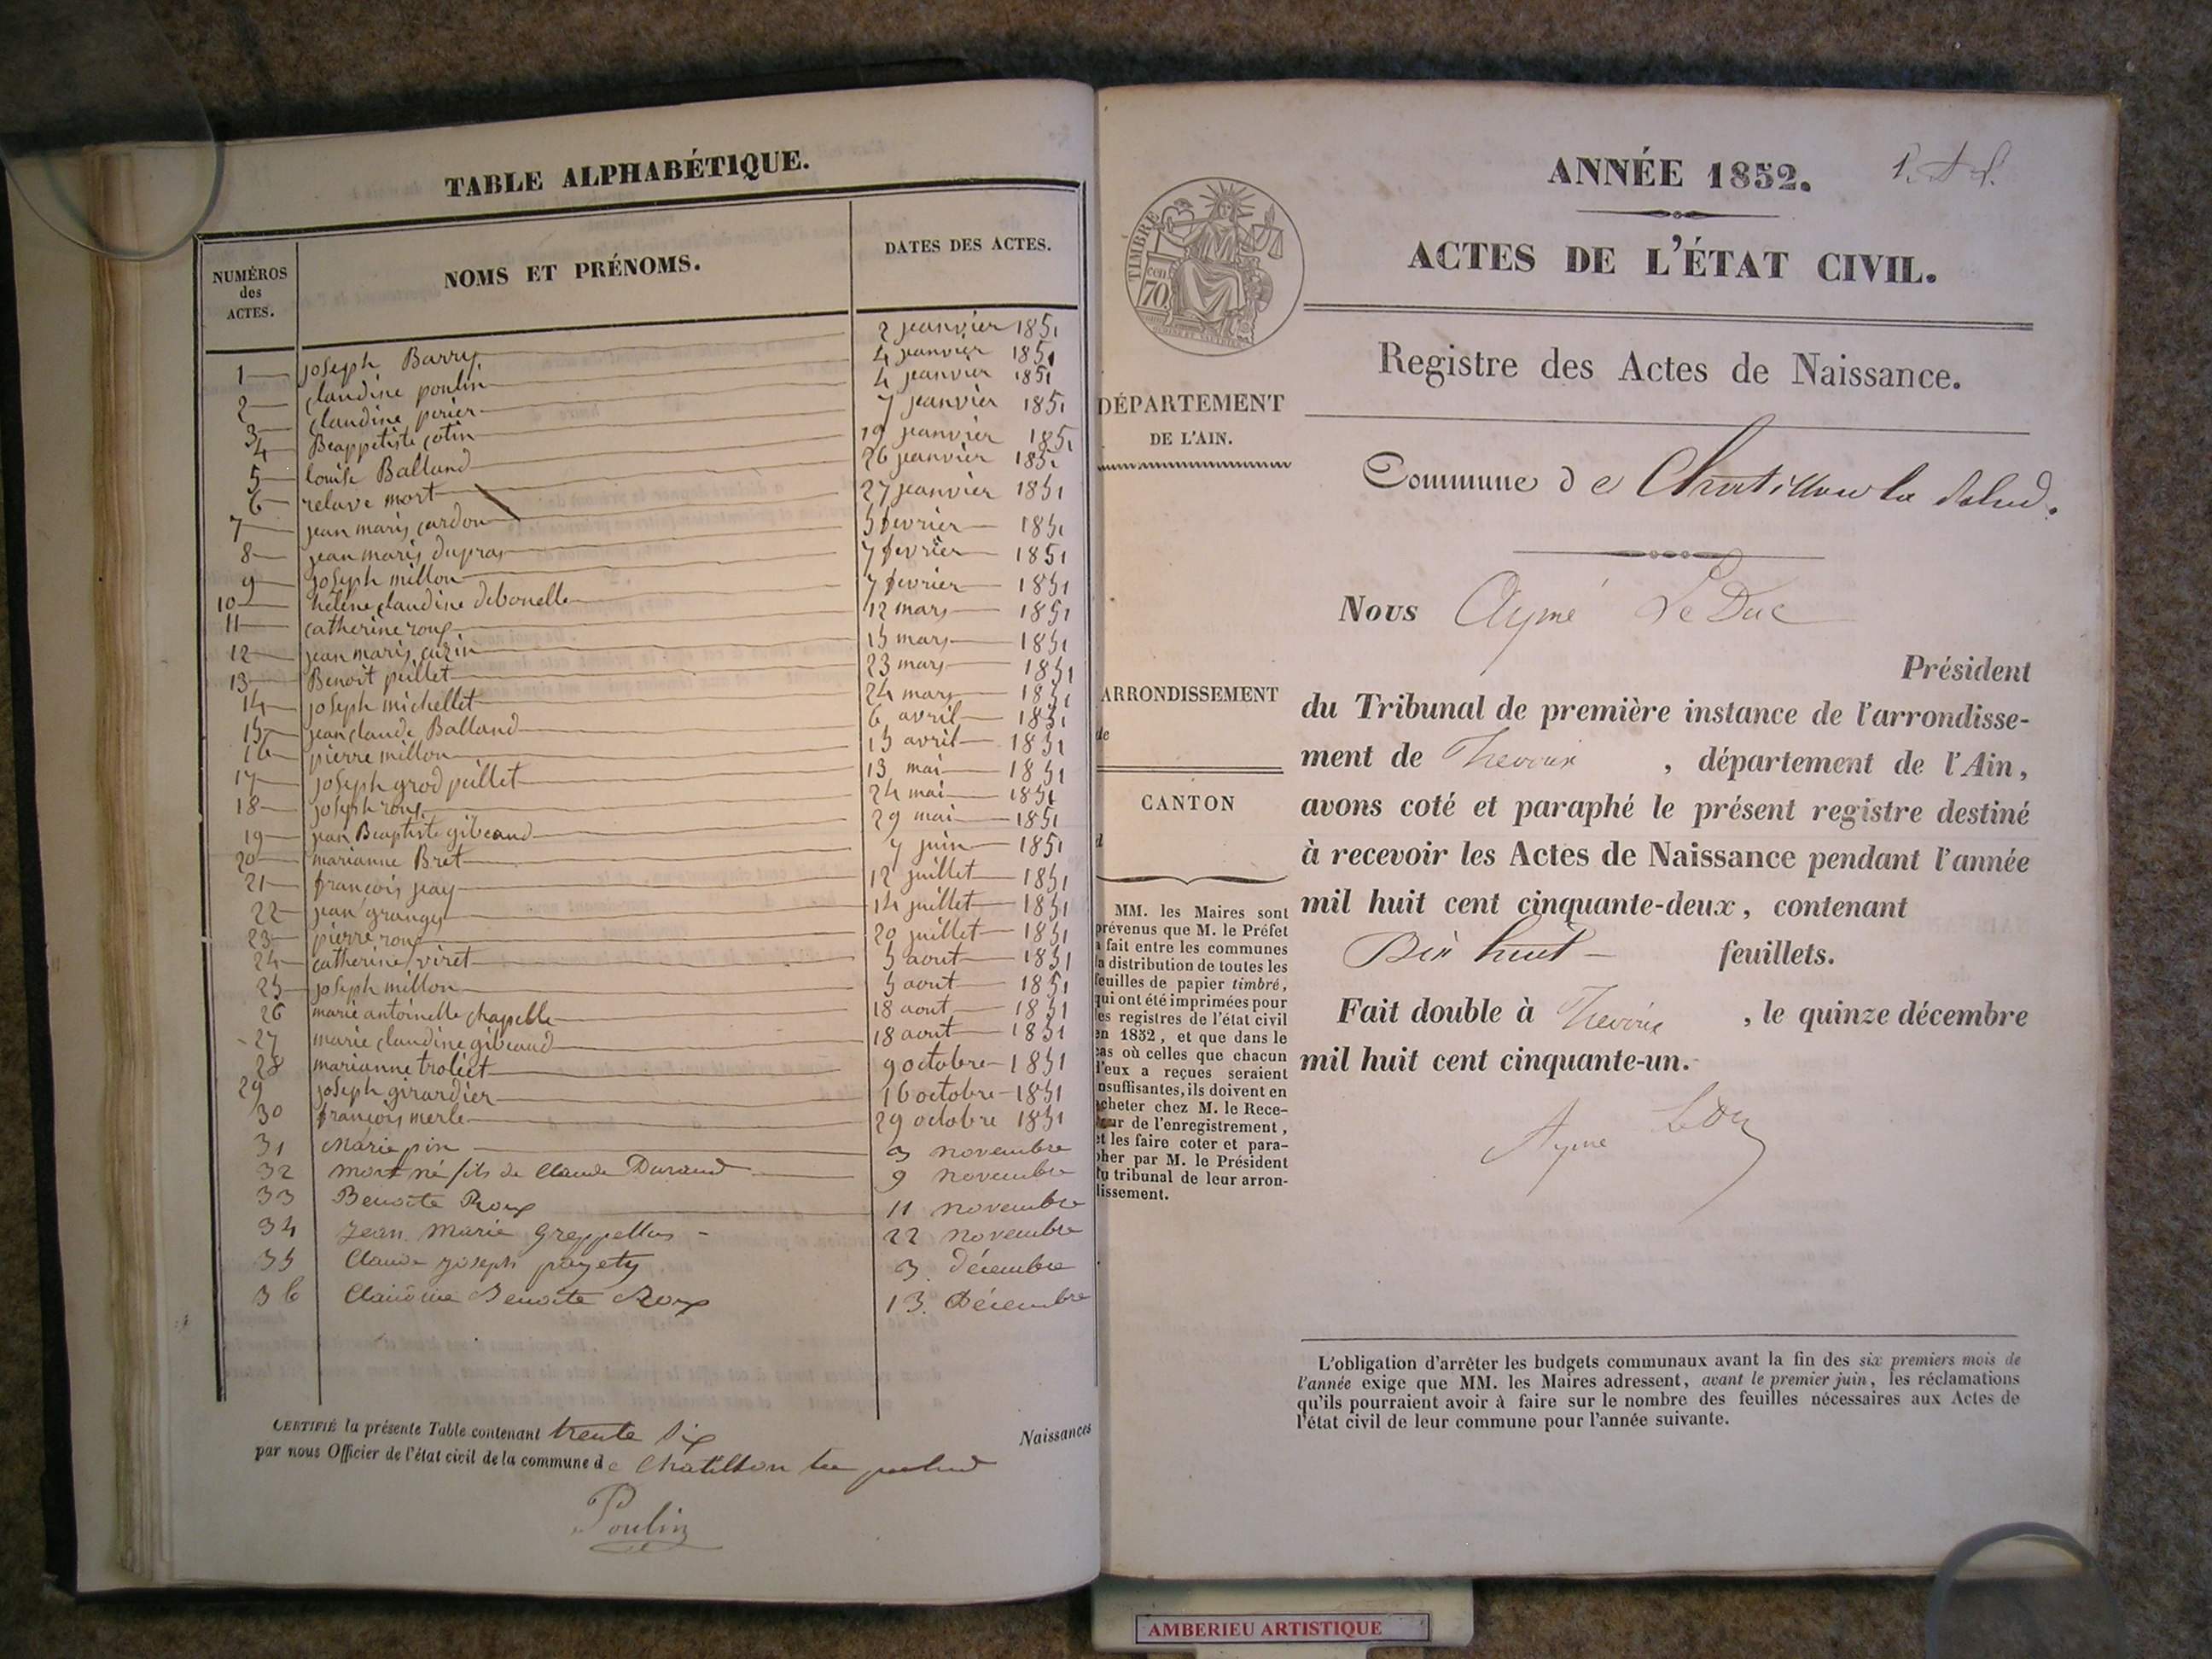 TABLE ALPHABÉTIQUE.
NUMÉROS
des
ACTES.
NOMS ET PRÉNOMS.
DATES DES ACTES.
1 joseph Barry 2 jeanvier 1851
2 claudine poulin 4 jeanvier 1851
3 claudine perier 4 jeanvier 1851
4 Beappetiste cotin 7 jeanvier 1851
5 louise Balland 19 jeanvier 1851
6 relave mort 26 jeanvier 1851
7 jean marie cardon 27 jeanvier 1851
8 jean marie dupras 5 fevrier 1851
9 joseph millon 7 fevrier 1851
10 hélène claudine debonelle 7 fevrier 1851
11 catherine roux 12 mars 1851
12 jean marie cuzin 15 mars 1851
13 Benoit peillet 23 mars 1851
14 joseph michellet 24 mars 1851
15 jean claude Balland 6 avril 1851
16 pierre millon 15 avril 1851
17 joseph grod peillet 13 mai 1851
18 joseph roux 24 mai 1851
19 jean Beaptiste gibeaud 29 mai 1851
20 marianne Bret 7 juin 1851
21 françois jeay 12 juillet 1851
22 jean granger 14 juillet 1851
23 pierre roux 20 juillet 1851
24 catherine viret 5 aout 1851
25 joseph millon 5 aout 1851
26 marie antoinette chapelle 18 aout 1851
27 marie claudine gibeaud 18 aout 1851
28 marianne troliet 9 octobre 1851
29 joseph girardier 16 octobre 1851
30 françois merle 29 octobre 1851
31 Marie pin 3 novembre
32 mort né fils de Claude Durand 9 novembre
33 Benoite Roux 11 novembre
34 Jean Marie 22 novembre
35 Claude joseph payety 3. décembre
36 Claudine Benoite Roux 13. Décembre
CERTIFIÉ la présente Table contenant trente six Naissances
par nous Officier de l'état civil de la commune de Chatillon la palud
Poulin
ANNÉE 1852.
ACTES DE L'ÉTAT CIVIL.
TIMBRE
70
cen
Registre des Actes de Naissance.
DÉPARTEMENT
DE L'AIN.
Commune de Chatillon la Palud.
Nous Aymé Le Duc
Président
ARRONDISSEMENT
de
CANTON
d
du Tribunal de première instance de l'arrondisse-
ment de Trevoux, département de l'Ain,
avons coté et paraphé le présent registre destiné
à recevoir les Actes de Naissance pendant l'année
mil huit cent cinquante-deux, contenant
Dix huit feuillets.
Fait double à Trevoux, le quinze décembre
mil huit cent cinquante-un.
MM. les Maires sont
prévenus que M. le Préfet
a fait entre les communes
la distribution de toutes les
feuilles de papier timbré,
qui ont été imprimées pour
les registres de l'état civil
en 1852, et que dans le
cas où celles que chacun
d'eux a reçues seraient
insuffisantes, ils doivent en
acheter chez M. le Rece-
veur de l'enregistrement,
et les faire coter et para-
pher par M. le Président
du tribunal de leur arron-
dissement.
Ayme LeDuc
L'obligation d'arrêter les budgets communaux avant la fin des six premiers mois de
l'année exige que MM. les Maires adressent, avant le premier juin, les réclamations
qu'ils pourraient avoir à faire sur le nombre des feuilles nécessaires aux Actes de
l'état civil de leur commune pour l'année suivante.
AMBERIEU ARTISTIQUE